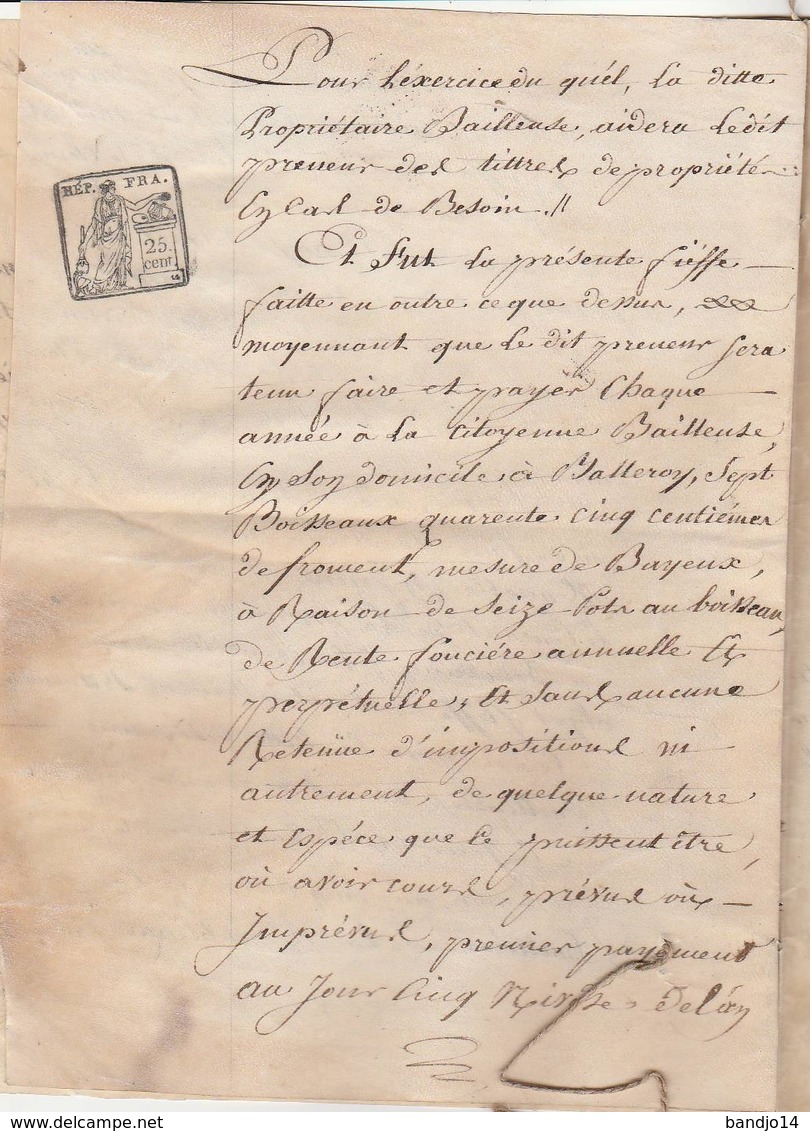 Pour l'éxercice du quél, la ditte
Propriétaire Bailleuse, aidera ledit
preneur des tittres de propriété
En Cas de Besoin.//
RÉP. FRA.
25.
cent.
Et Fut la présente fiéffe
faitte en outre ce que dessus,
moyennant que le dit preneur sera
tenu faire et payer Chaque
année à la Citoyenne Bailleuse,
En son domicile à Balleroy, Sept
Boisseaux quarente cinq centiémes
de froment, mesure de Bayeux,
à Raison de seize Pots au boisseau,
de Rente fonciére annuelle Et
perpétuelle, Et sans aucune
Retenüe d'impositions ni
autrement, de quelque nature
et Espéce que ce puissent être,
où avoir cours, prévus où
Imprévus, premier payement
au Jour Cinq Nivôse de l'an
bandjo14